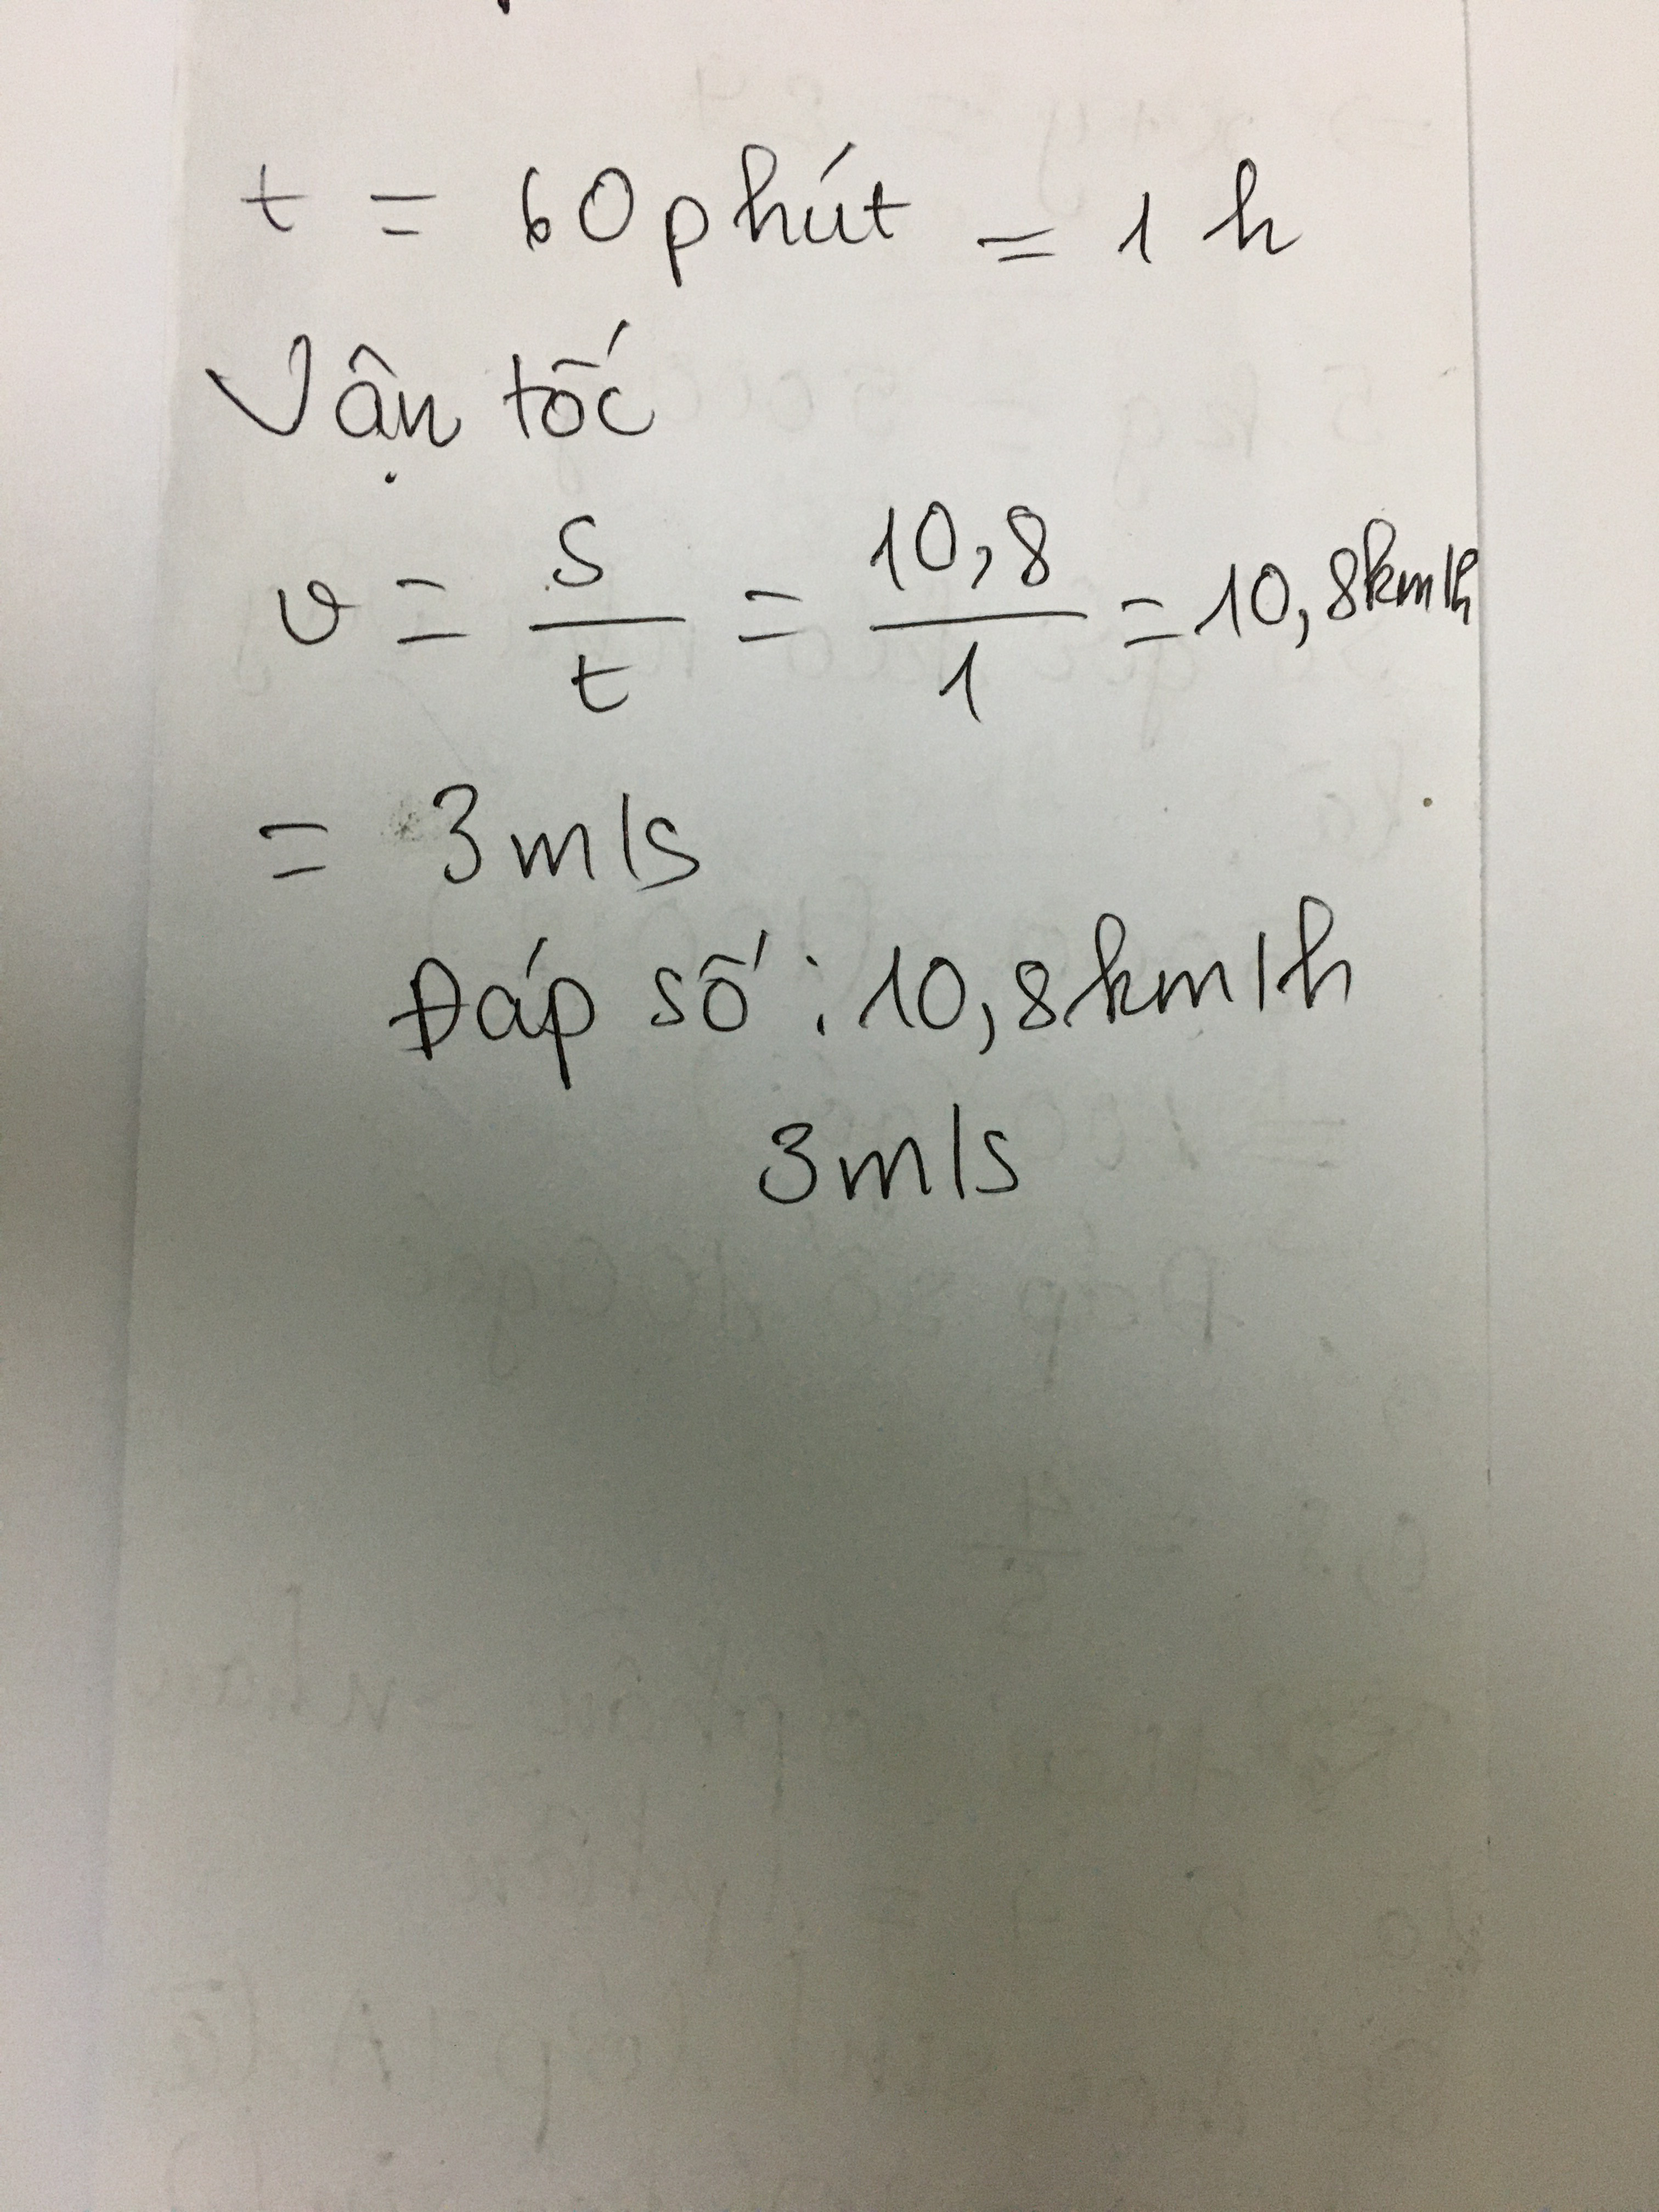 t = 60 phút = 1 h
Vận tốc
v = s/t = 10,8/1 = 10,8km/h
= 3m/s
Đáp số : 10,8km/h
3m/s